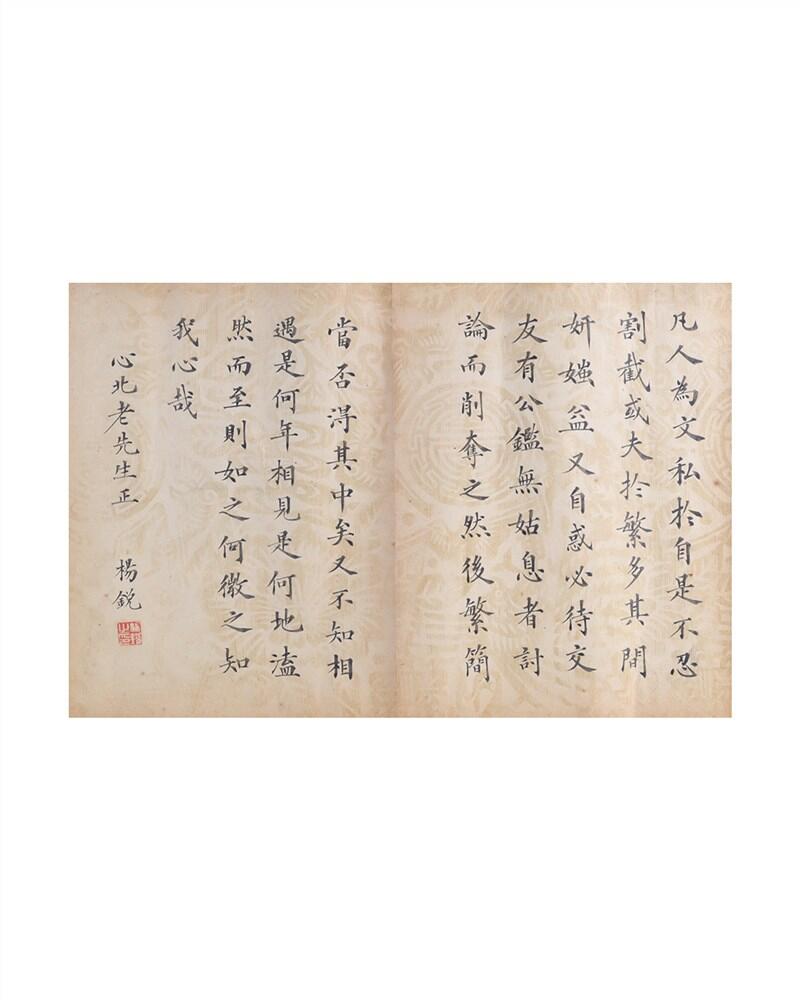 凡人為文私於自是不忍
割截或失於繁多其間
妍媸益又自惑必待交
友有公鑑無姑息者討
論而削奪之然後繁簡
當否得其中矣又不知相
遇是何年相見是何地溘
然而至則如之何微之知
我心哉
心北老先生正
楊銳